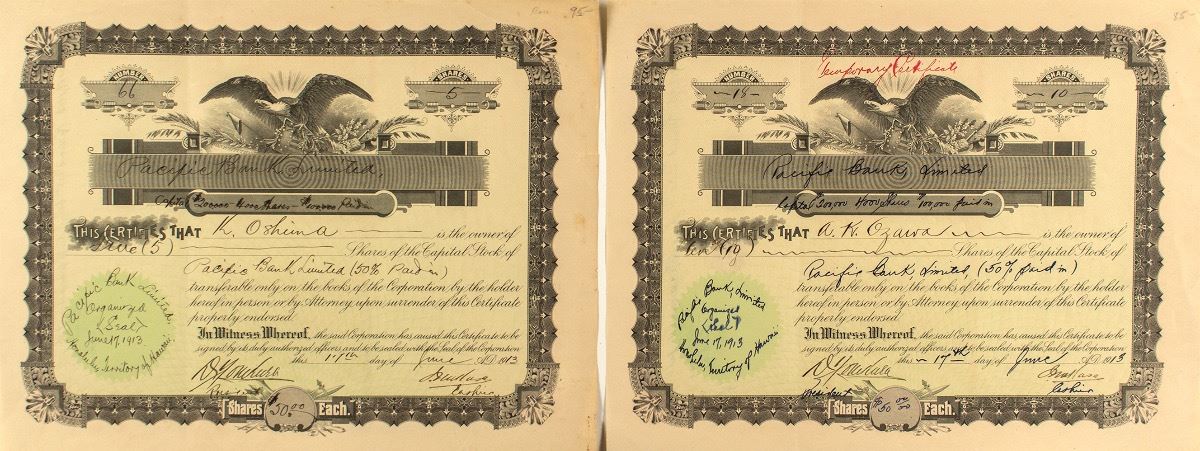 95-
NUMBER
66
SHARES
5
Pacific Bank Limited,
Capital $200000 4000 Shares $100000 Paid in
THIS CERTIFIES THAT K. Oshima is the owner of
Five (5) Shares of the Capital Stock of
Pacific Bank Limited (50% Paid in)
transferable only on the books of the Corporation by the holder
hereof in person or by Attorney, upon surrender of this Certificate
properly endorsed.
In Witness Whereof, the said Corporation has caused this Certificate to be
signed by its duly authorized officers and to be sealed with the Seal of the Corporation
this 17th day of June A.D. 1913
Pacific Bank Limited,
Organized
(Seal)
June 17, 1913
Honolulu Territory of Hawaii
Cashier
Shares $50.00 Each.
85-
Temporary Certificate
NUMBER
18
SHARES
10
Pacific Bank, Limited
Capital $200,000 4000 Shares $100,000 paid in
THIS CERTIFIES THAT A. K. Ozawa is the owner of
Ten (10) Shares of the Capital Stock of
Pacific Bank Limited, (50% paid in)
transferable only on the books of the Corporation by the holder
hereof in person or by Attorney, upon surrender of this Certificate
properly endorsed.
In Witness Whereof, the said Corporation has caused this Certificate to be
signed by its duly authorized officers and to be sealed with the Seal of the Corporation
this 17th day of June A.D. 1913
Bank, Limited
Organized
(Seal)
June 17, 1913
Honolulu Territory of Hawaii
President
Cashier
Shares $50.00 Each.